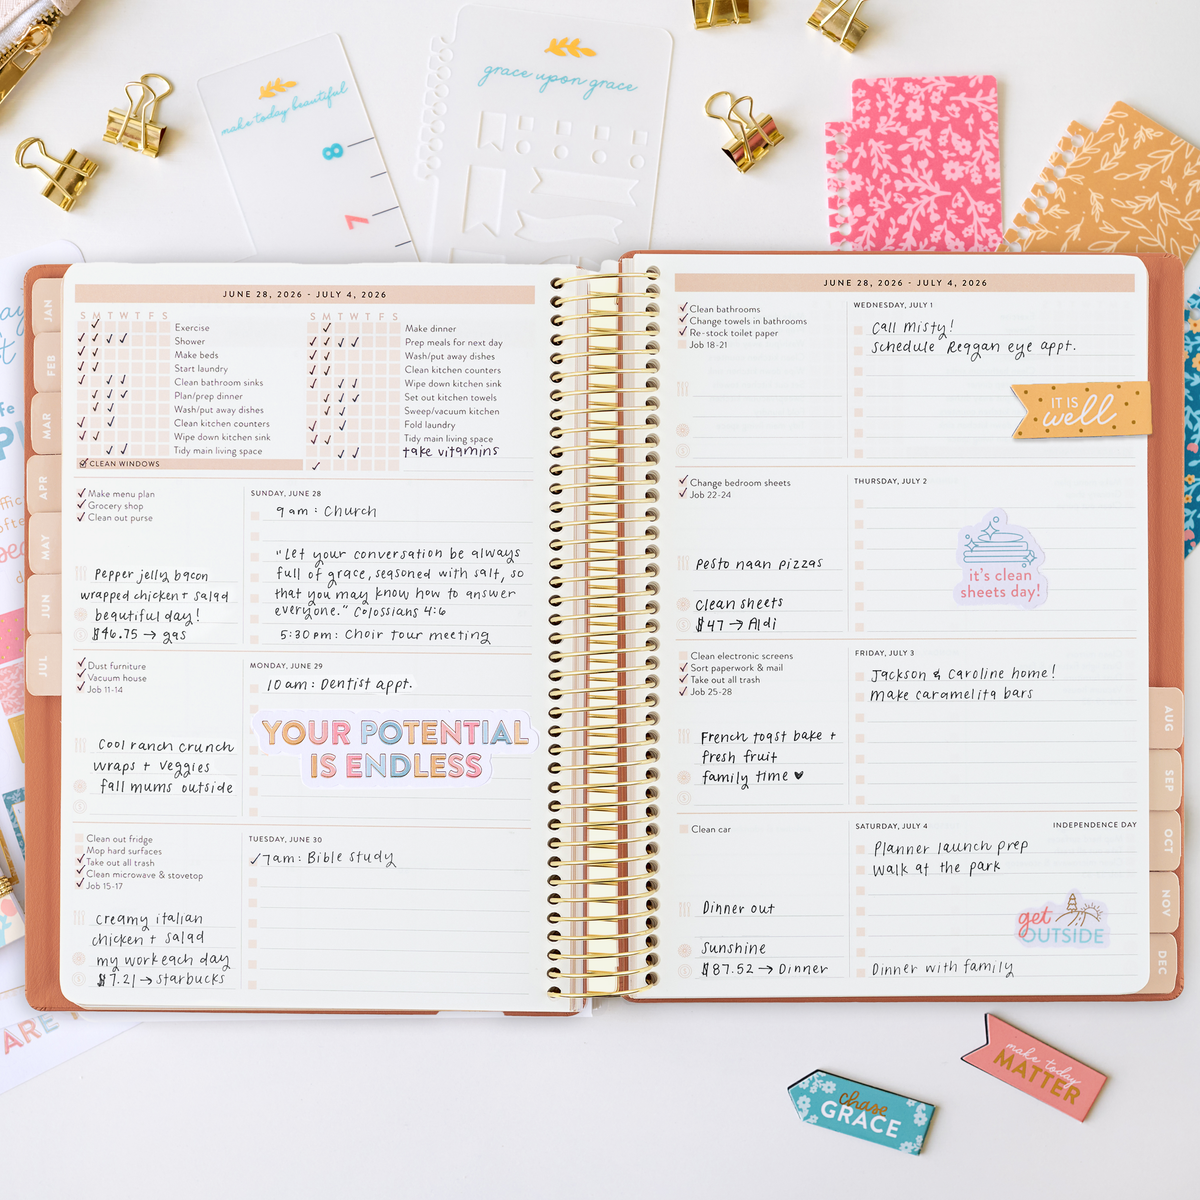 make today beautiful
8
7
grace upon grace
JAN
FEB
MAR
APR
MAY
JUN
JUL
JUNE 28, 2026 - JULY 4, 2026
S M T W T F S
Exercise
Shower
Make beds
Start laundry
Clean bathroom sinks
Plan/prep dinner
Wash/put away dishes
Clean kitchen counters
Wipe down kitchen sink
Tidy main living space
S M T W T F S
Make dinner
Prep meals for next day
Wash/put away dishes
Clean kitchen counters
Wipe down kitchen sink
Set out kitchen towels
Sweep/vacuum kitchen
Fold laundry
Tidy main living space
take vitamins
CLEAN WINDOWS
Make menu plan
Grocery shop
Clean out purse
Pepper jelly bacon
wrapped chicken + salad
beautiful day!
$46.75 → gas
SUNDAY, JUNE 28
9am: Church
"Let your conversation be always
full of grace, seasoned with salt, so
that you may know how to answer
everyone." Colossians 4:6
5:30pm: Choir tour meeting
Dust furniture
Vacuum house
Job 11-14
Cool ranch crunch
wraps + veggies
fall mums outside
MONDAY, JUNE 29
10am: Dentist appt.
YOUR POTENTIAL
IS ENDLESS
Clean out fridge
Mop hard surfaces
Take out all trash
Clean microwave & stovetop
Job 15-17
creamy italian
chicken + salad
my work each day
$7.21 → Starbucks
TUESDAY, JUNE 30
7am: Bible study
JUNE 28, 2026 - JULY 4, 2026
Clean bathrooms
Change towels in bathrooms
Re-stock toilet paper
Job 18-21
WEDNESDAY, JULY 1
Call Misty!
Schedule Reggan eye appt.
IT IS
well
Change bedroom sheets
Job 22-24
pesto naan pizzas
Clean sheets
$47 → Aldi
THURSDAY, JULY 2
it's clean
sheets day!
Clean electronic screens
Sort paperwork & mail
Take out all trash
Job 25-28
French toast bake +
fresh fruit
family time ♥
FRIDAY, JULY 3
Jackson & Caroline home!
make caramelita bars
Clean car
Dinner out
Sunshine
$87.52 → Dinner
SATURDAY, JULY 4
INDEPENDENCE DAY
Planner launch prep
Walk at the park
get
OUTSIDE
Dinner with family
AUG
SEP
OCT
NOV
DEC
make today
MATTER
chase
GRACE